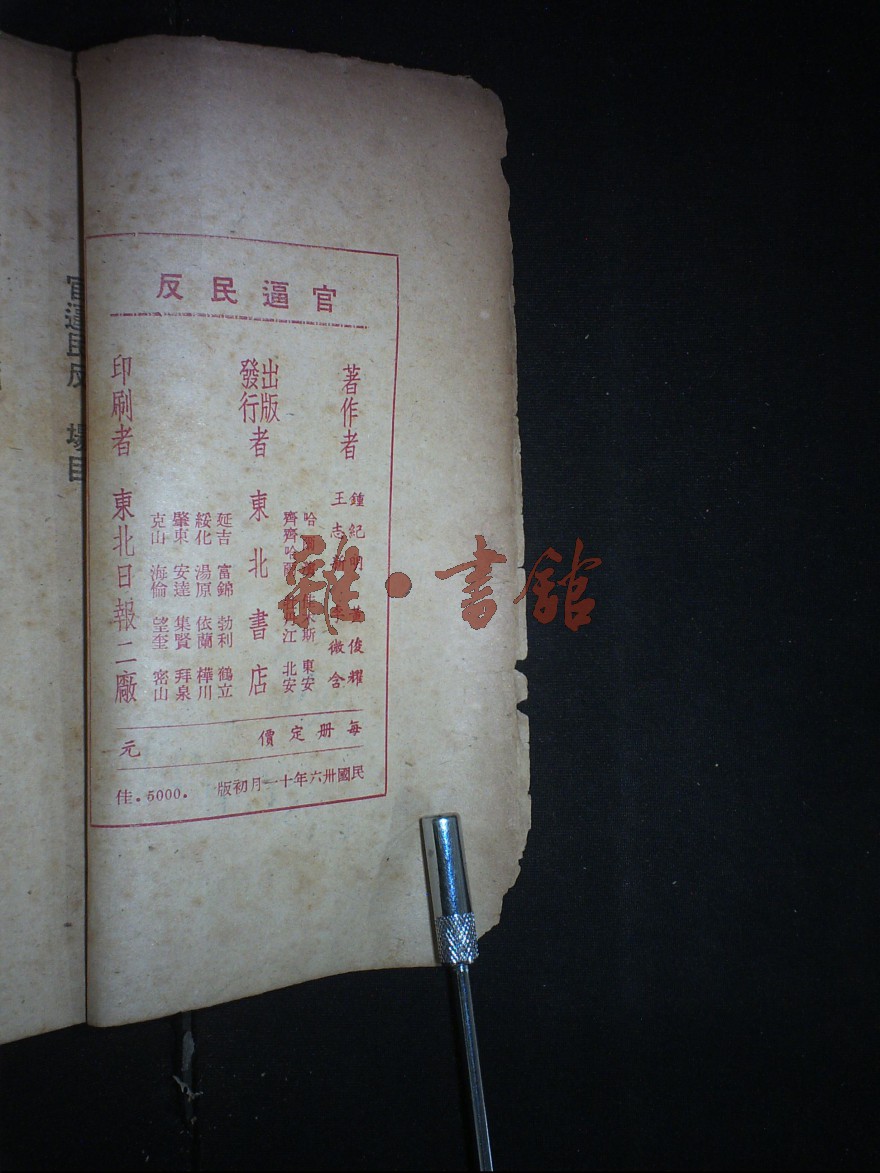 官逼民反
著作者
鍾紀明 俊耀
王志新 微含
哈爾濱 佳木斯 東安
齊齊哈爾 牡丹江 北安
出版
發行者 東北書店
延吉 富錦 勃利 鶴立
綏化 湯原 依蘭 樺川
肇東 安達 集賢 拜泉
克山 海倫 望奎 密山
印刷者 東北日報二廠
每册定價 元
民國卅六年十一月初版 .5000. 佳
官逼民反 場目
雜·書舘